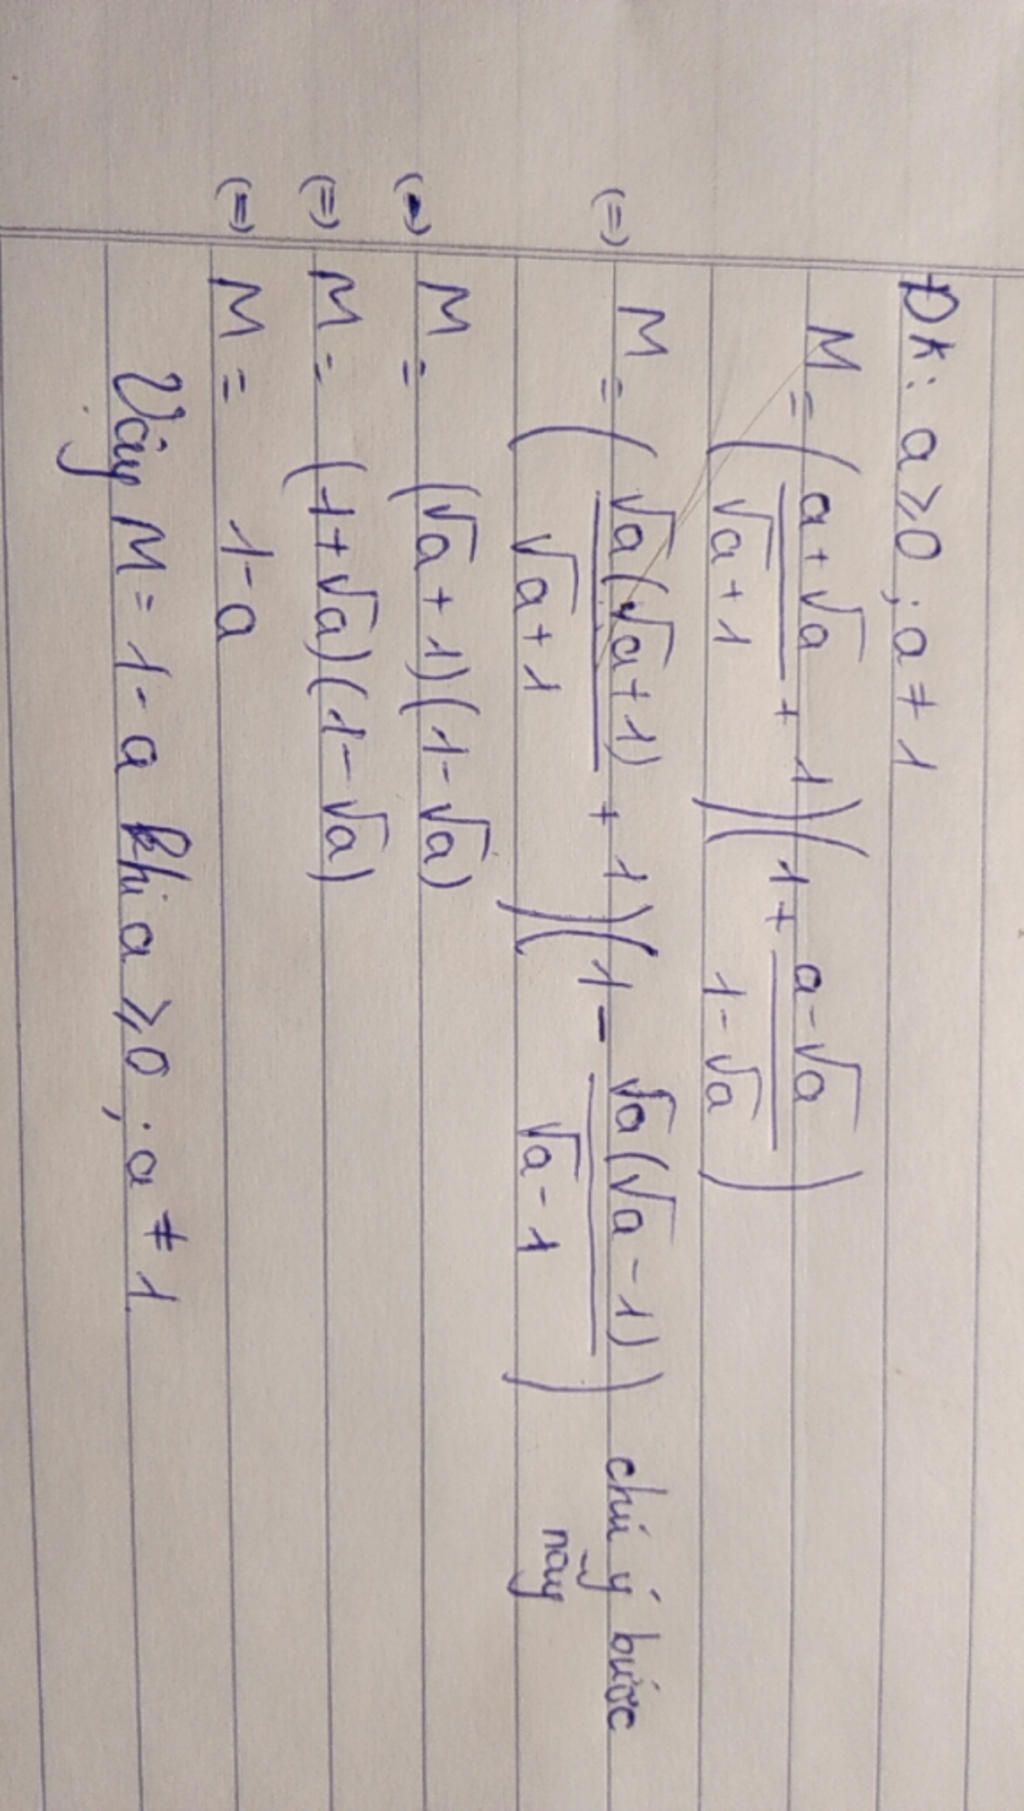 ĐK: a ≥ 0 ; a ≠ 1
M = ( (a+√a)/(√a+1) + 1 ) ( 1 + (a-√a)/(1-√a) )
(=) M = ( √a(√a+1)/(√a+1) + 1 ) ( 1 - √a(√a-1)/(√a-1) ) chú ý bước này
(=) M = (√a+1)(1-√a)
(=) M = (1+√a)(1-√a)
(=) M = 1-a
Vậy M = 1-a khi a ≥ 0 ; a ≠ 1